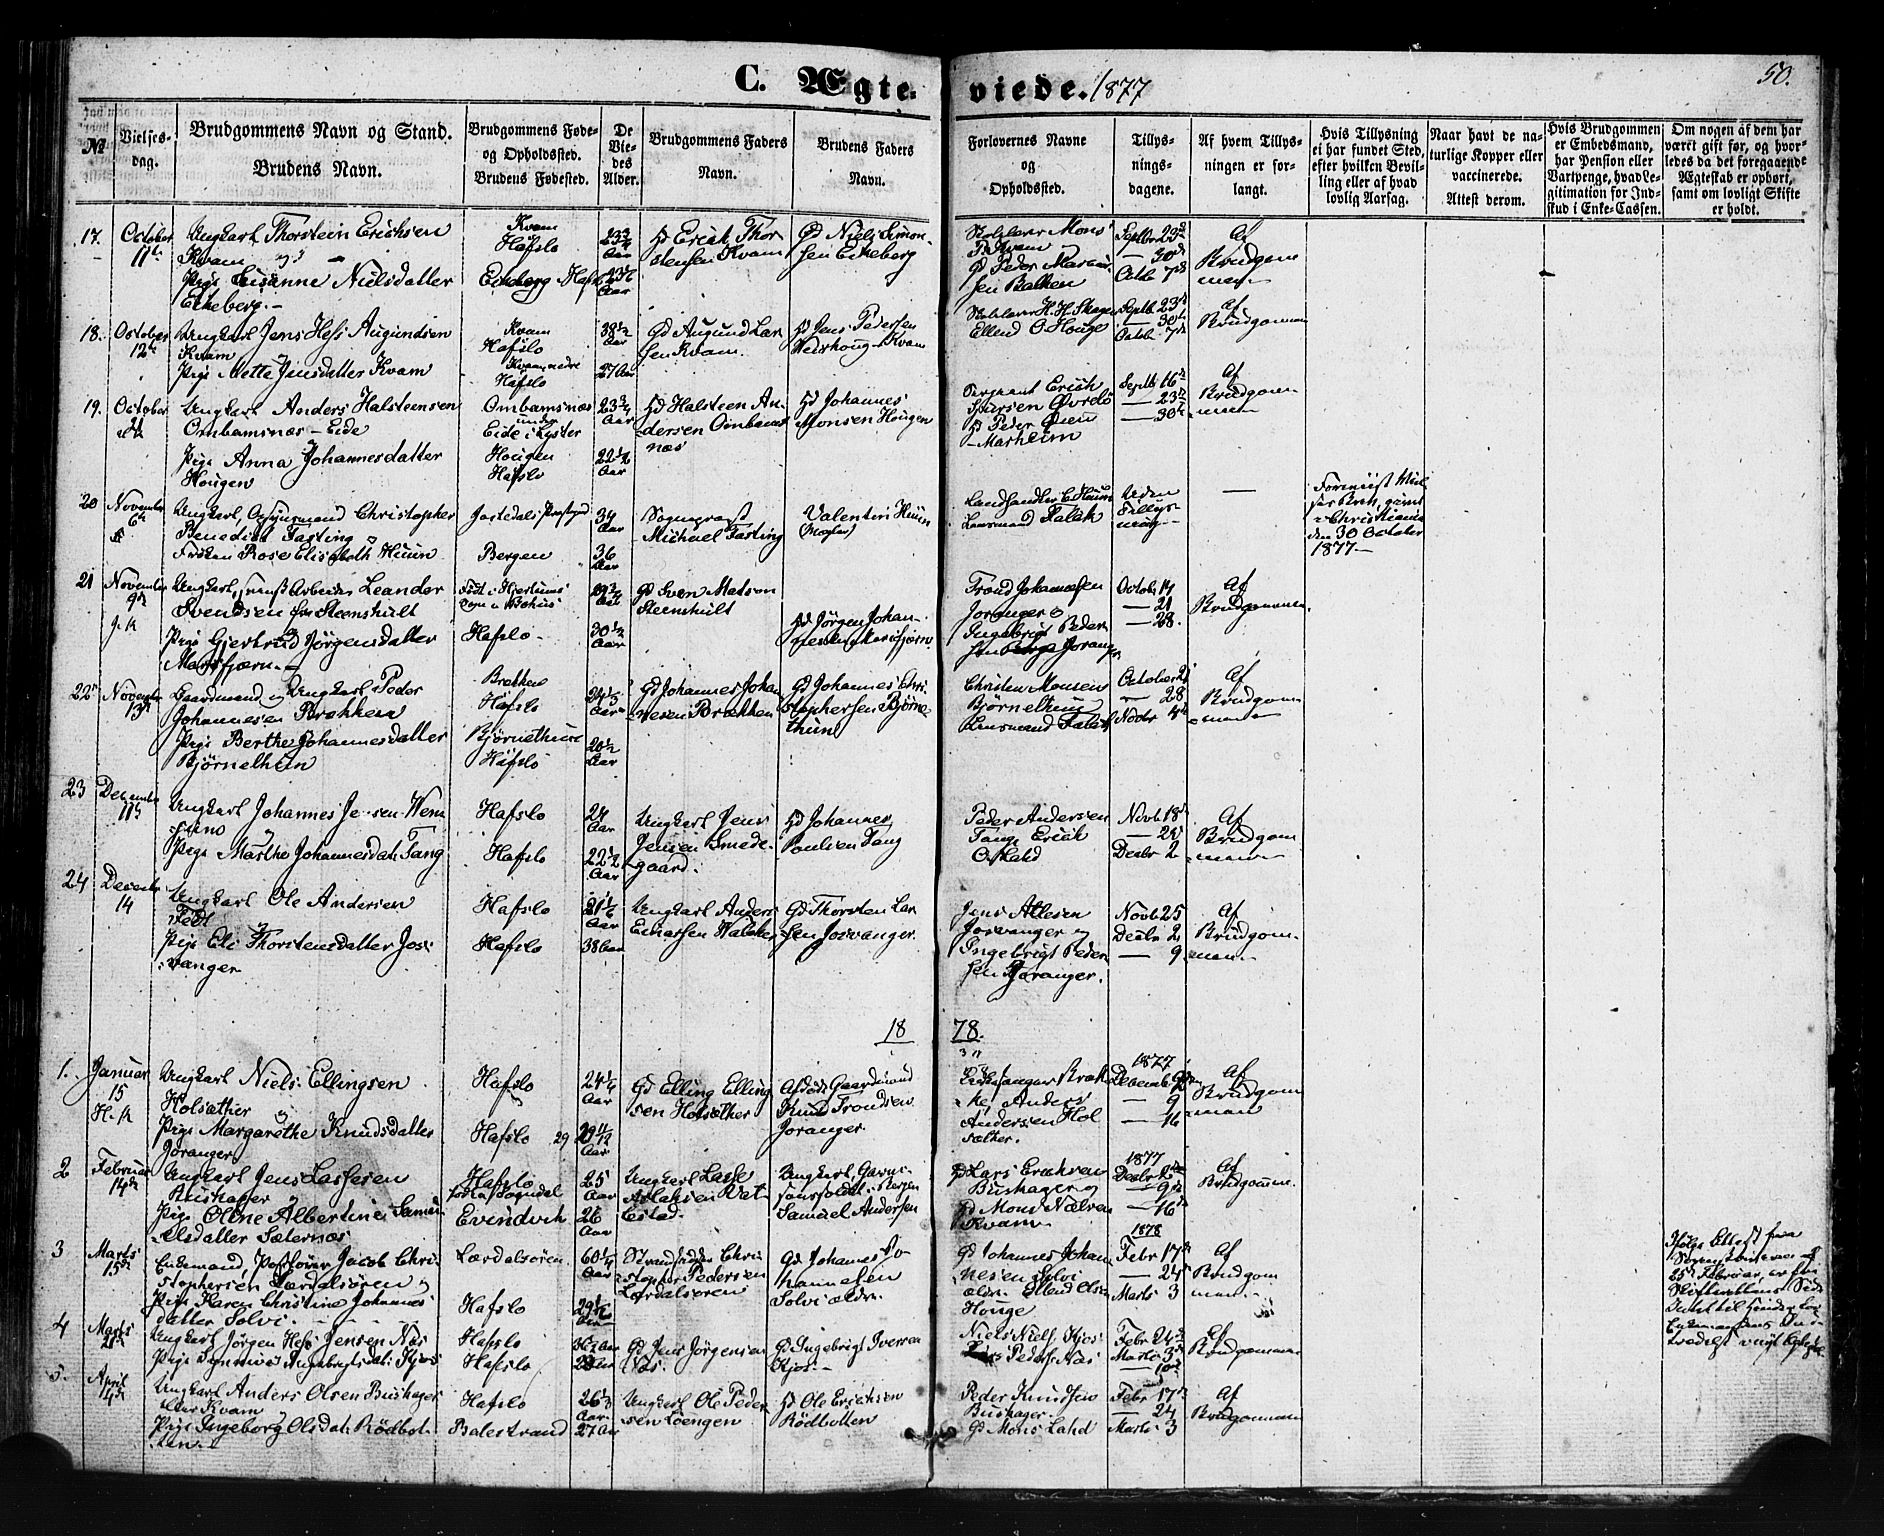 C. Ægte- viede. 1877
50.
№
Vielses-
dag.
Brudgommens Navn og Stand.
Brudens Navn.
Brudgommens Føde-
og Opholdssted.
Brudens Fødested.
De
Vie-
des
Alder.
Brudgommens Faders
Navn.
Brudens Faders
Navn.
Forlovernes Navne
og
Opholdssted.
Tillys-
nings-
dagene.
Af hvem Tillys-
ningen er for-
langt.
Hvis Tillysning
ei har fundet Sted,
efter hvilken Bevil-
ling eller af hvad
lovlig Aarsag.
Naar havt de na-
turlige Kopper eller
vaccinerede.
Attest derom.
Hvis Brudgommen
er Embedsmand,
har Pension eller
Vartpenge, hvad Le-
gitimation for Ind-
skud i Enke-Cassen.
Om nogen af dem har
været gift før, og hvor-
ledes da det foregaaende
Ægteskab er ophørt,
samt om lovligt Skifte
er holdt.
17.
October
11te
Ungkarl Thorstein Erichsen
Kvam og
Pige Susanne Nielsdatter
Eikeberg.-
Kvam
Hafslo
Eikeberg Hafslo
23 3/4
Aar
23 1/2
Aar
Gd Erick Thor-
stensen Kvam
Gd Niels Simon-
sen Eikeberg
Skolelærer Mons
P. Kvam
Gd Peder
sen Bakken
Septbr 23de
— 30te
Octob 7de
Af
Brudgom
men
18.
October
12te
Ungkarl Jens Hess Augundsen
Kvam
Pige Mette Jensdatter Kvam
Kvam
Hafslo
Kvam nedre
Hafslo
38 1/2
Aar
27 Aar
Gd Augund Lar-
sen Kvam.
Gd Jens Pedersen
Kvam
Skolelærer H. H. Skagen
Ellend O. Houge
Septb. 23de
— 30te
Octob 7de
Af
Brudgommen
19.
October
Ungkarl Anders Halsteensen
Ombamsnæs - Eide
Pige Anna Johannesdatter
Hougen
Ombamsnæs
under
Eide i Lyster
Hougen
Hafslo
23 3/4
Aar
22 1/2
Aar
Gd Halsteen An-
dersen Ombams
næs
Gd Johannes
Monsen Hougen
Sergeant Erick
Gd Peder
- Marheim
Septb 16de
— 23de
— 30te
Af
Brudgom-
men
20
November
6te
Ungkarl, Opsynsmand Christopher
Benedict Fasting og
Frøken Rose Elisabeth Huun
Jostedals Præstegjeld
Bergen
34
Aar
36
Aar
Sognepræst
Michael Fasting
Valentin Huun
Landhandler C. Huun
Lensmand Falck
Uden
Tillys-
ning -
—
i Christiania
den 30 October
1877 -
21
November
9de
Ungkarl, Leander
Svendsen fra Steenshult
Pige Gjertrud Jørgensdatter
Marifjæren.
Født i Hjertums
Sogn i Bohus
Hafslo -
Aar
30 1/2
Aar
Gd Sven Matson
Steenshult
Gd Jørgen Johan-
nesen Marifjæren
Trond Johannesen
Joranger og
Ingebrigt Peder-
sen Joranger
Octob 14
— 21
— 28.
Af
Brudgommen
22
November
13de
Gaardmand og Ungkarl Peder
Johannesen Brækken
Pige Berthe Johannesdatter
Bjørnethun
Brækken
Hafslo
Bjørnethun
Hafslo
Aar
20 1/2
Aar
Gd Johannes Johan-
nesen Brækken
Gd Johannes Chri-
stophersen Bjørne-
thun
Christen Monsen
Bjørnethun
Lensmand Falck
October 21
— 28
Novbr 4de
Af
Brudgom-
men
23
December
11te
Ungkarl Johannes Jensen
Pige Marthe Johannesdatt. Tang
Hafslo
Hafslo
24
Aar
22 1/2
Aar
Ungkarl Jens
Jensen Smede-
gaard.
Gd Johannes
Poulsen Tang
Peder Andersen
Tang Erick
Novb. 18de
— 25
Decbr 2
Af
Brudgom-
men
24
December
14
Ungkarl Ole Andersen
Fedt
Pige Eli Thorstensdatter Jos-
vanger
Hafslo
Hafslo
Aar
38 Aar
Ungkarl Anders
Einarsen
Gd Thorsten Lar-
sen Josvanger.
Jens Atlesen
Josvanger og
Ingebrigt Peder-
sen Joranger.
Novb 25
Decbr 2
— 9
Af
Brudgom-
men
18 78.
1.
Januar
15
H. K
Ungkarl Niels Ellingsen
Holsæther og
Pige Margarethe Knudsdatter
Joranger
Hafslo
Hafslo
24 1/4
Aar
29 11/12
Aar
Gd Elling Elling-
sen Holsæther
Afdøde Gaardmand
Knud Trondsen
Joranger
Kirkesanger Bræk-
ke, Anders
Andersen Hol-
sæther.
1877
— 9
— 16
Af
Brudgom-
men
2
Februar
14de
Ungkarl Jens Lassesen
Bushager
Pige Oline Albertine Samu-
elsdatter Sæternæs
Hafslo
Evindvik
25
Aar
26
Aar
Ungkarl Lasse
Aslaksen Vat-
lestad.
Ungkarl Garni-
sonssoldat i Bergen
Samuel Andersen
Gd Lars Ericksen
Bushager og
Gd Mons Nielsen
Kvam
1877
Decbr 2den
— 9de
— 16de
Af
Brudgommen
3
Marts
15de
Enkemand, Postfører Jacob Chri-
stophersen Lærdalsøren og
Pige Karen Christine Johannes-
datter Solvi.
Lærdalsøren
Hafslo
60 1/4
Aar
Aar
Strandsidder Chri-
stopher Pedersen
Lærdalsøren
Gd Johannes Jo-
hannesen
Solvi ældre
Gd Johannes Johan-
nesen Solvi
ældre. Ellend Olsen
Houge
1878
Febr 17de
— 24de
Marts 3
Af
Brudgom-
men.
Ifølge Attest fra
25de Februar, er
4
Marts
Ungkarl Jørgen Hess Jensen Næs
Pige Synneve Ingebrigtsdatt. Kjos
Hafslo
Hafslo
Aar
Aar
Gd Jens Jørgensen
Næs.
Gd Ingebrigt Iversen
Kjos -
Niels Niels. Kjos
Peders. Næs
Febr 24de
Marts 3de
— 10de
Af
Brudgommen
5.
April
Ungkarl Anders Olsen Bushager
Kvam
Pige Ingeborg Olsdatt. Rödbot-
ten.
Hafslo
Balestrand
Aar
27 Aar
Ungkarl Ole Peder-
sen Loengen
Gd Ole Ericksen
Rödbotten
Peder Knudsen
Bushager.
Gd Mons Lahd
Febr 17de
— 24
Marts 3
Af
Brudgommen